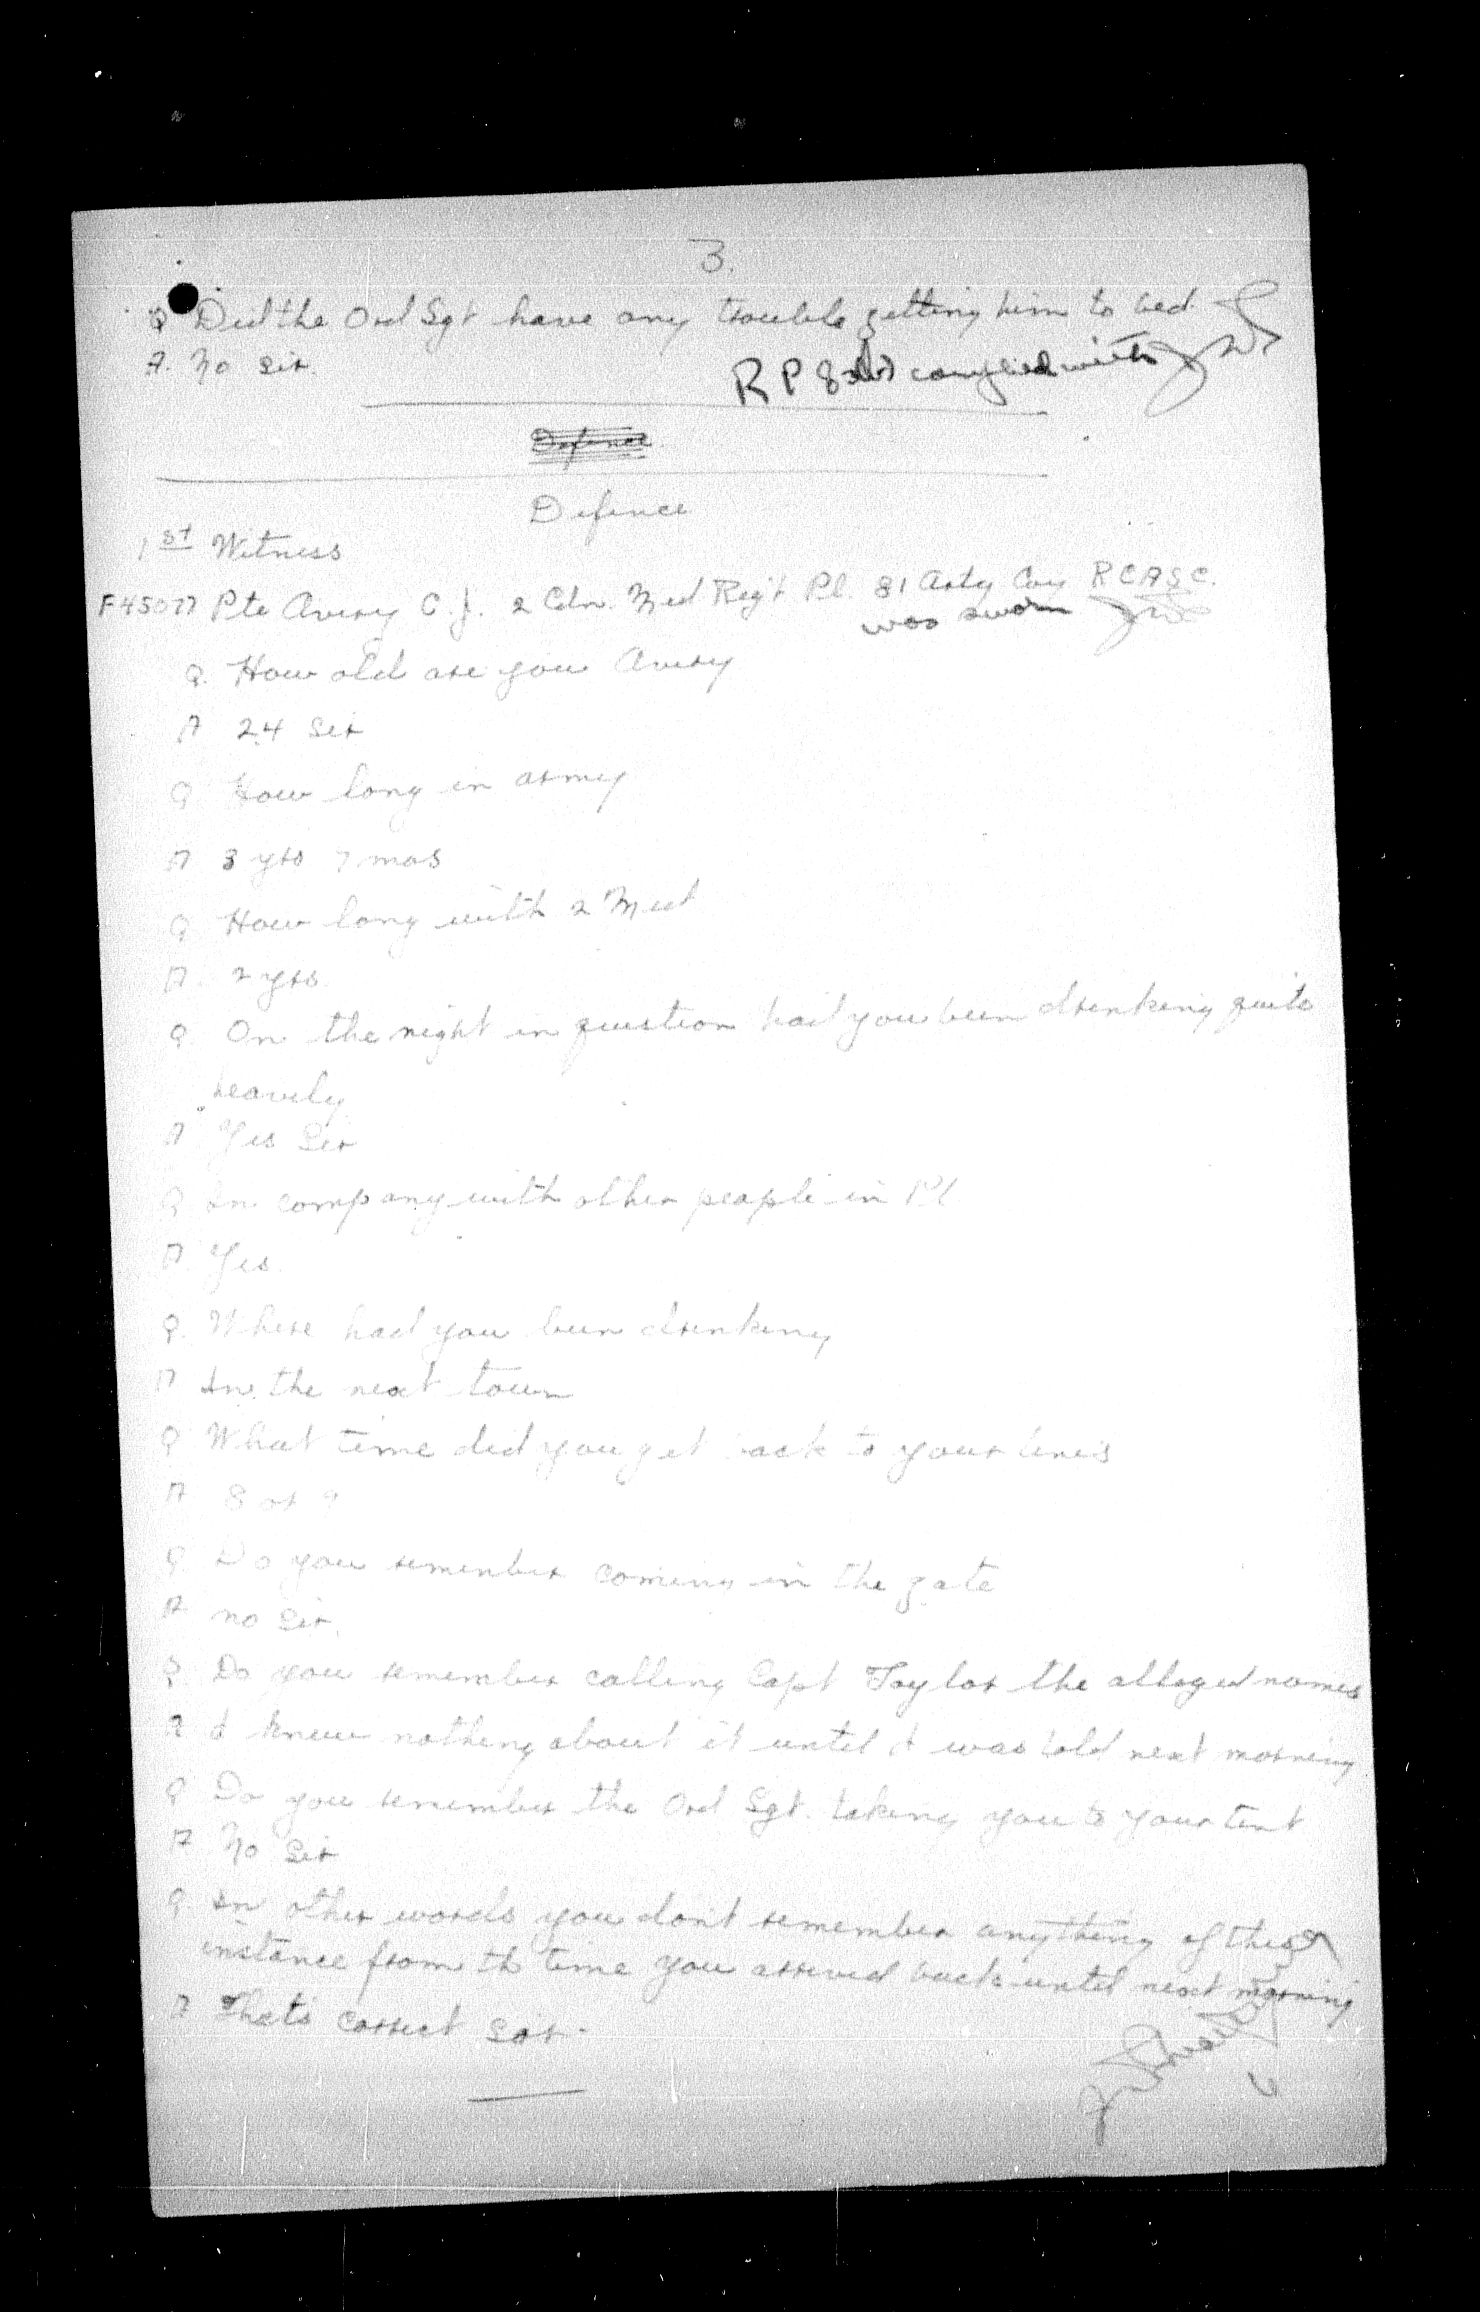 3.
Q Did the Ord Sgt have any trouble getting him to bed.
A. No Sir.
R P 83 complied with
Defence
Defence
1st Witness
F45077 Pte Avery C. J. 2 Cdn. Med Reg't Pl. 81 Arty Coy R C A S C.
was sworn
Q. How old are you Avery
A 24 Sir
Q How long in army
A 3 yrs 7 mos
Q How long with 2 Med
A. 2 yrs.
Q On the night in question had you been drinking quite
heavily
A Yes Sir
Q In company with other people in Pl
A. Yes.
Q. Where had you been drinking
A In the next town
Q What time did you get back to your lines
A 8 or 9
Q Do you remember coming in the gate
A no Sir.
Q Do you remember calling Capt Taylor the alleged names
A I knew nothing about it until I was told next morning
Q Do you remember the Ord Sgt. taking you to your tent
A No Sir
Q. In other words you don't remember anything of this
instance from th time you arrived back until next morning
A That's correct Sir.